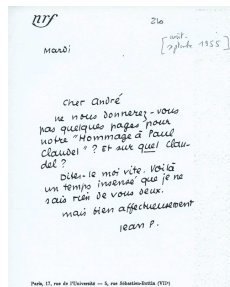 nrf
210
[août-
septembre 1955]
Mardi
Cher André
ne nous donnerez-vous
pas quelques pages pour
notre "Hommage à Paul
Claudel" ? Et sur quel Clau-
del ?
Dites-le moi vite. Voilà
un temps insensé que je ne
sais rien de vous deux.
mais bien affectueusement
Jean P.
Paris, 17, rue de l'Université — 5, rue Sébastien-Bottin (VIIe)